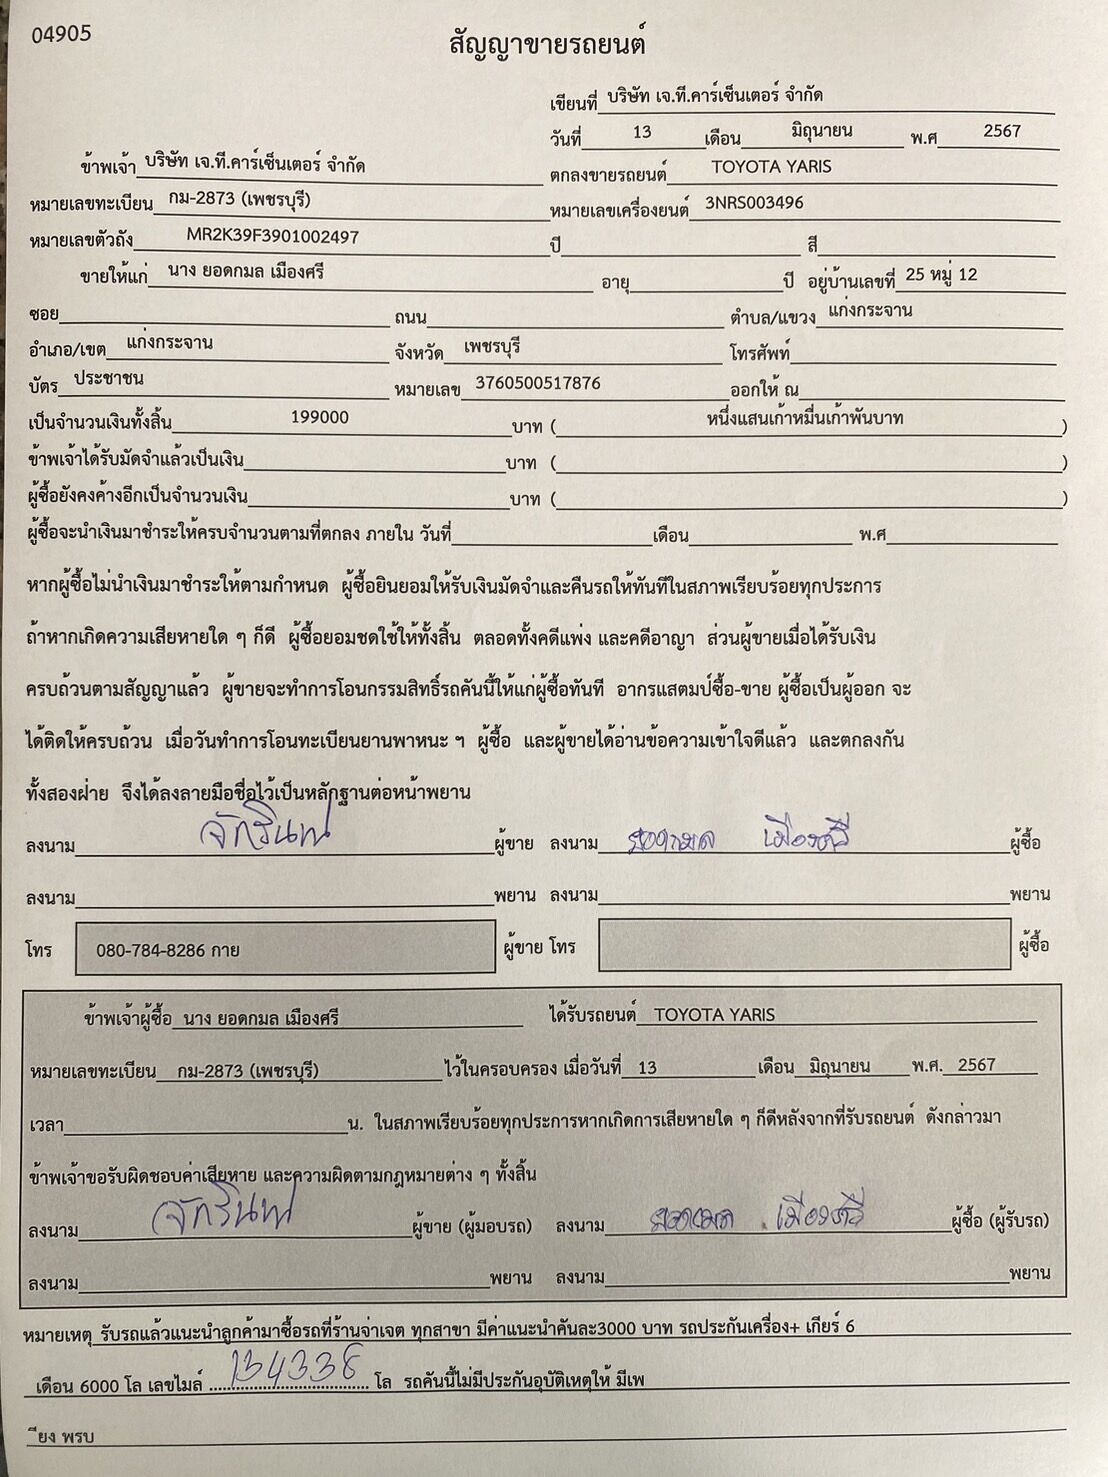 04905
สัญญาขายรถยนต์
เขียนที่ บริษัท เจ.ที.คาร์เซ็นเตอร์ จำกัด
วันที่ 13 เดือน มิถุนายน พ.ศ 2567
ข้าพเจ้า บริษัท เจ.ที.คาร์เซ็นเตอร์ จำกัด ตกลงขายรถยนต์ TOYOTA YARIS
หมายเลขทะเบียน กม-2873 (เพชรบุรี) หมายเลขเครื่องยนต์ 3NRS003496
หมายเลขตัวถัง MR2K39F3901002497 ปี สี
ขายให้แก่ นาง ยอดกมล เมืองศรี อายุ ปี อยู่บ้านเลขที่ 25 หมู่ 12
ซอย ถนน ตำบล/แขวง แก่งกระจาน
อำเภอ/เขต แก่งกระจาน จังหวัด เพชรบุรี โทรศัพท์
บัตร ประชาชน หมายเลข 3760500517876 ออกให้ ณ
เป็นจำนวนเงินทั้งสิ้น 199000 บาท ( หนึ่งแสนเก้าหมื่นเก้าพันบาท )
ข้าพเจ้าได้รับมัดจำแล้วเป็นเงิน บาท ( )
ผู้ซื้อยังคงค้างอีกเป็นจำนวนเงิน บาท ( )
ผู้ซื้อจะนำเงินมาชำระให้ครบจำนวนตามที่ตกลง ภายใน วันที่ เดือน พ.ศ
หากผู้ซื้อไม่นำเงินมาชำระให้ตามกำหนด ผู้ซื้อยินยอมให้รับเงินมัดจำและคืนรถให้ทันทีในสภาพเรียบร้อยทุกประการ
ถ้าหากเกิดความเสียหายใด ๆ ก็ดี ผู้ซื้อยอมชดใช้ให้ทั้งสิ้น ตลอดทั้งคดีแพ่ง และคดีอาญา ส่วนผู้ขายเมื่อได้รับเงิน
ครบถ้วนตามสัญญาแล้ว ผู้ขายจะทำการโอนกรรมสิทธิ์รถคันนี้ให้แก่ผู้ซื้อทันที อากรแสตมป์ซื้อ-ขาย ผู้ซื้อเป็นผู้ออก จะ
ได้ติดให้ครบถ้วน เมื่อวันทำการโอนทะเบียนยานพาหนะ ฯ ผู้ซื้อ และผู้ขายได้อ่านข้อความเข้าใจดีแล้ว และตกลงกัน
ทั้งสองฝ่าย จึงได้ลงลายมือชื่อไว้เป็นหลักฐานต่อหน้าพยาน
ลงนาม จักรินทร์ ผู้ขาย ลงนาม ยอดกมล เมืองศรี ผู้ซื้อ
ลงนาม พยาน ลงนาม พยาน
โทร 080-784-8286 กาย ผู้ขาย โทร ผู้ซื้อ
ข้าพเจ้าผู้ซื้อ นาง ยอดกมล เมืองศรี ได้รับรถยนต์ TOYOTA YARIS
หมายเลขทะเบียน กม-2873 (เพชรบุรี) ไว้ในครอบครอง เมื่อวันที่ 13 เดือน มิถุนายน พ.ศ. 2567
เวลา น. ในสภาพเรียบร้อยทุกประการหากเกิดการเสียหายใด ๆ ก็ดีหลังจากที่รับรถยนต์ ดังกล่าวมา
ข้าพเจ้าขอรับผิดชอบค่าเสียหาย และความผิดตามกฎหมายต่าง ๆ ทั้งสิ้น
ลงนาม จักรินทร์ ผู้ขาย (ผู้มอบรถ) ลงนาม ยอดกมล เมืองศรี ผู้ซื้อ (ผู้รับรถ)
ลงนาม พยาน ลงนาม พยาน
หมายเหตุ รับรถแล้วแนะนำลูกค้ามาซื้อรถที่ร้านจ่าเจต ทุกสาขา มีค่าแนะนำคันละ3000 บาท รถประกันเครื่อง+ เกียร์ 6
เดือน 6000 โล เลขไมล์ 134338 โล รถคันนี้ไม่มีประกันอุบัติเหตุให้ มีเพ
ียง พรบ